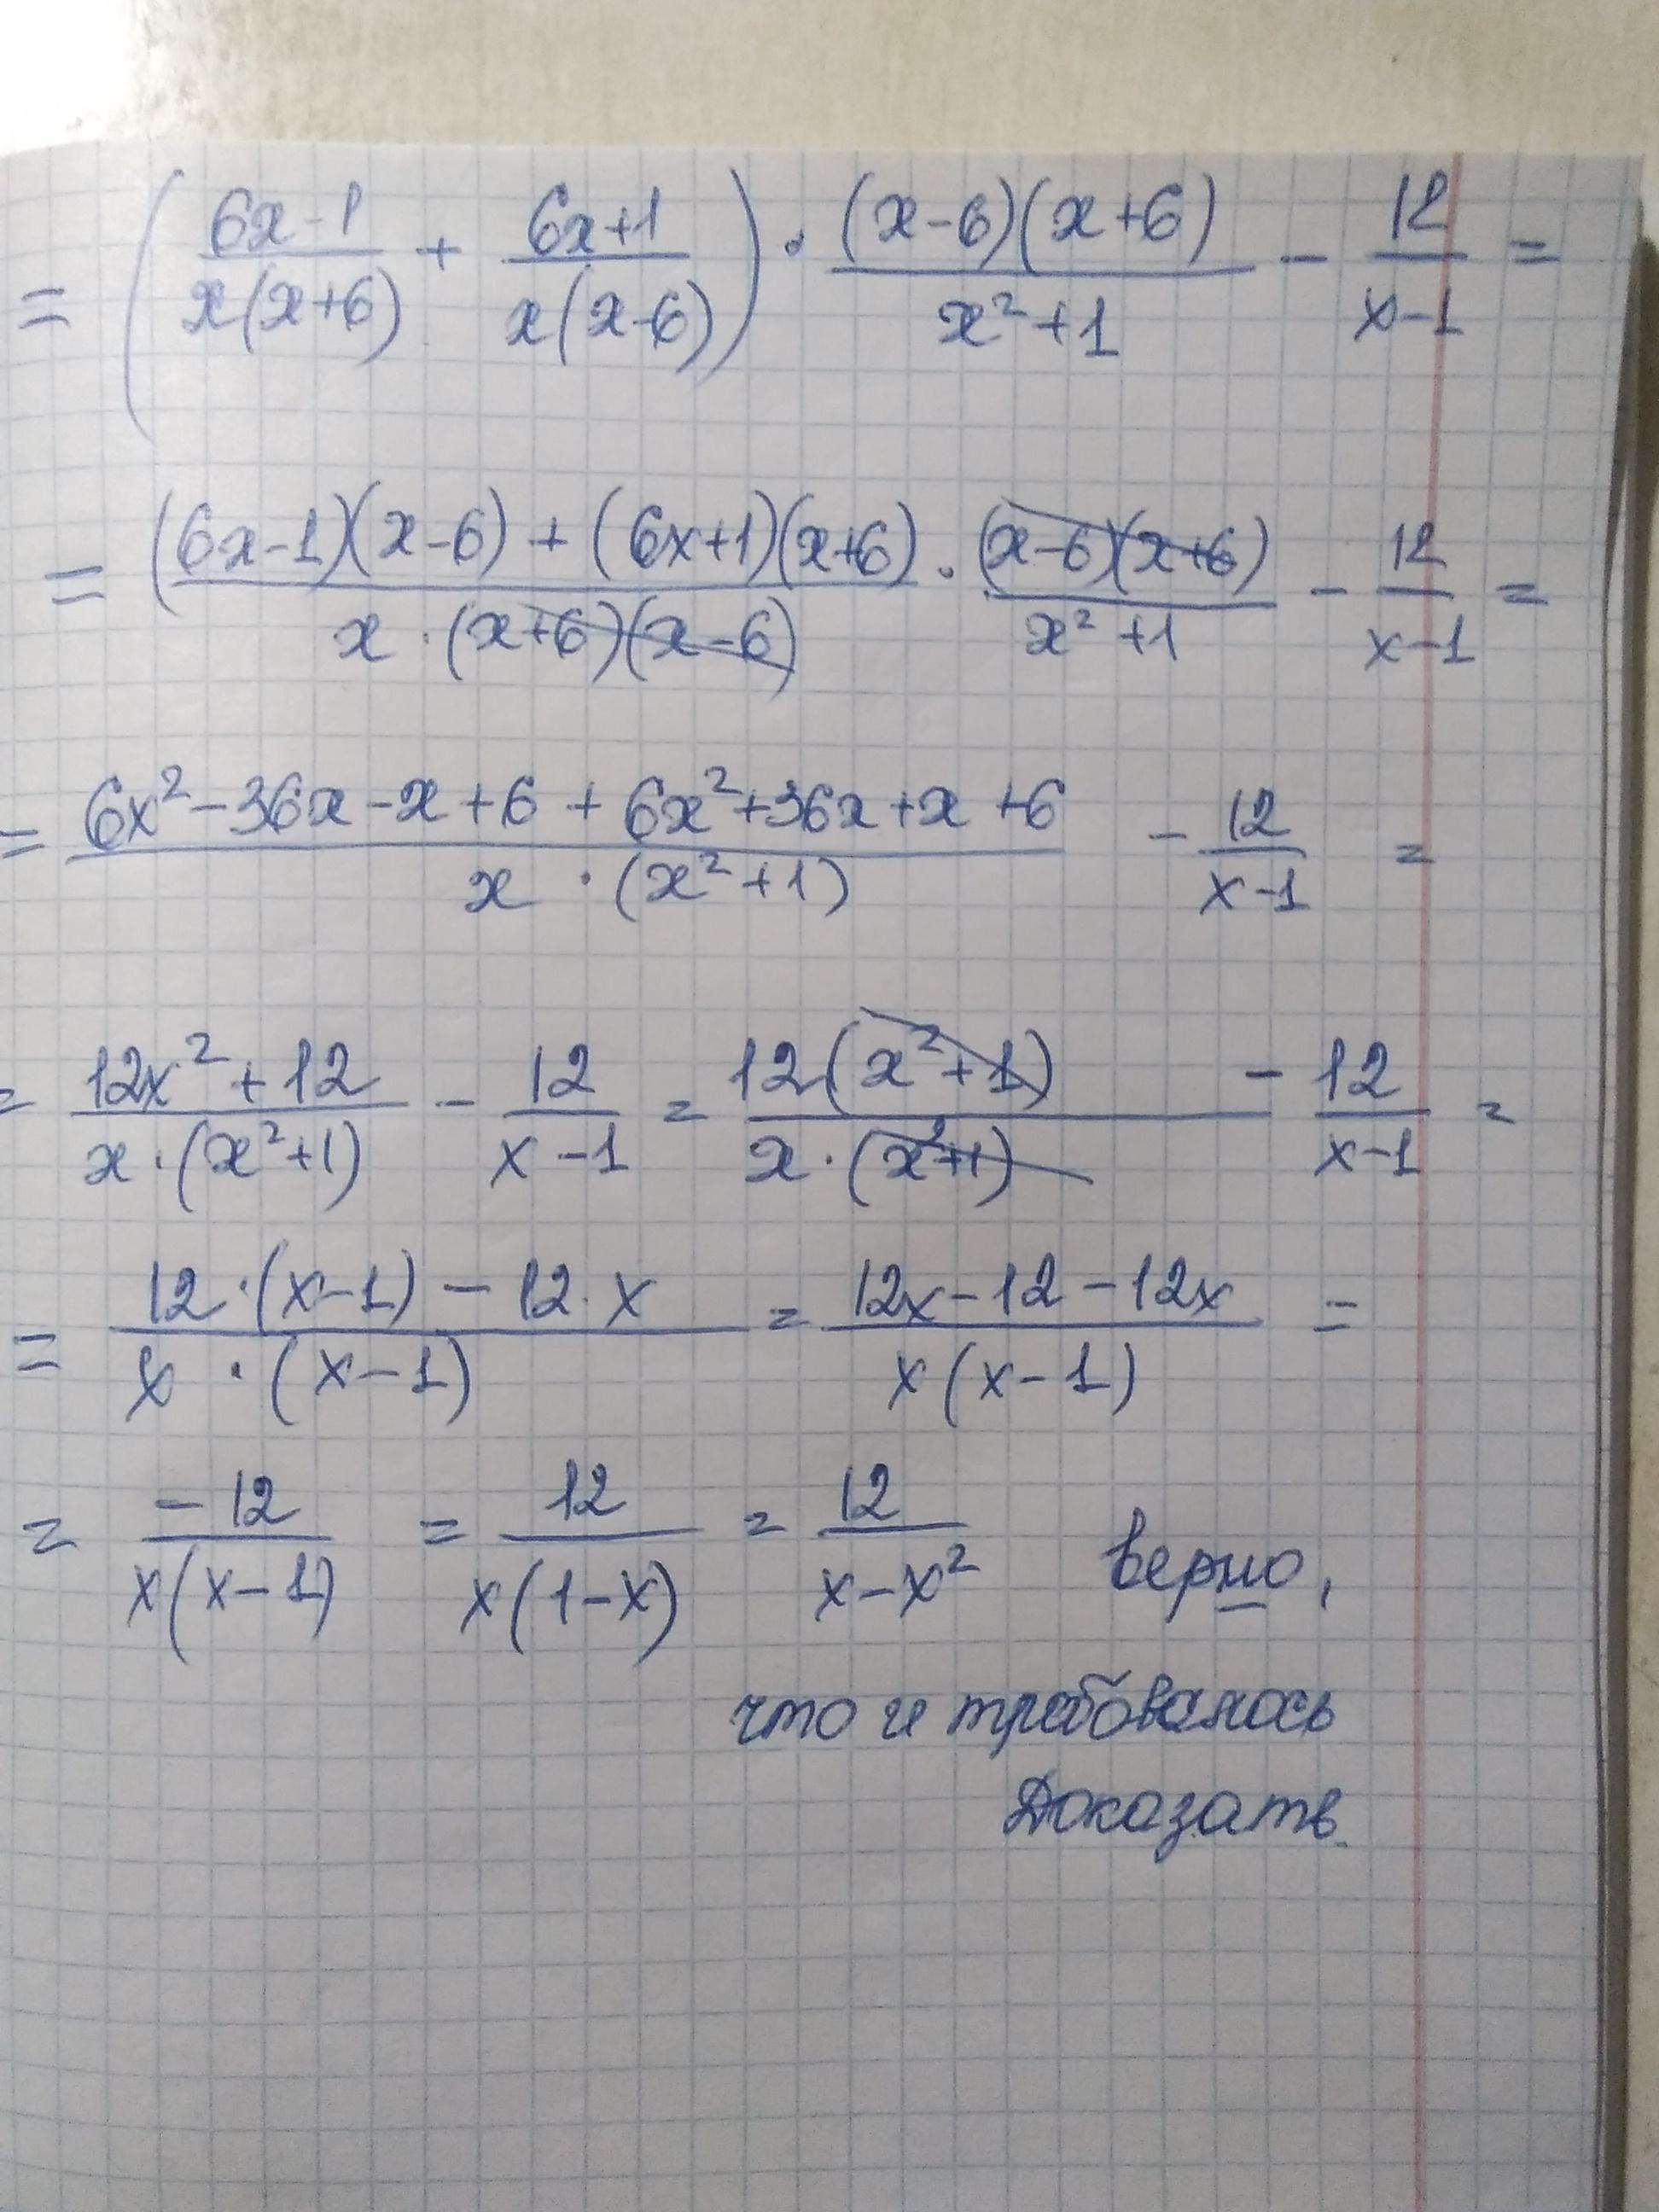 = ( (6x-1)/(x(x+6)) + (6x+1)/(x(x-6)) ) · ((x-6)(x+6))/(x²+1) - 12/(x-1) =
= ((6x-1)(x-6) + (6x+1)(x+6))/(x·(x+6)(x-6)) · ((x-6)(x+6))/(x²+1) - 12/(x-1) =
= (6x²-36x-x+6+6x²+36x+x+6)/(x·(x²+1)) - 12/(x-1) =
= (12x²+12)/(x·(x²+1)) - 12/(x-1) = (12(x²+1))/(x·(x²+1)) - 12/(x-1) =
= (12·(x-1)-12·x)/(x·(x-1)) = (12x-12-12x)/(x(x-1)) =
= -12/(x(x-1)) = 12/(x(1-x)) = 12/(x-x²) верно,
что и требовалось
Доказать.